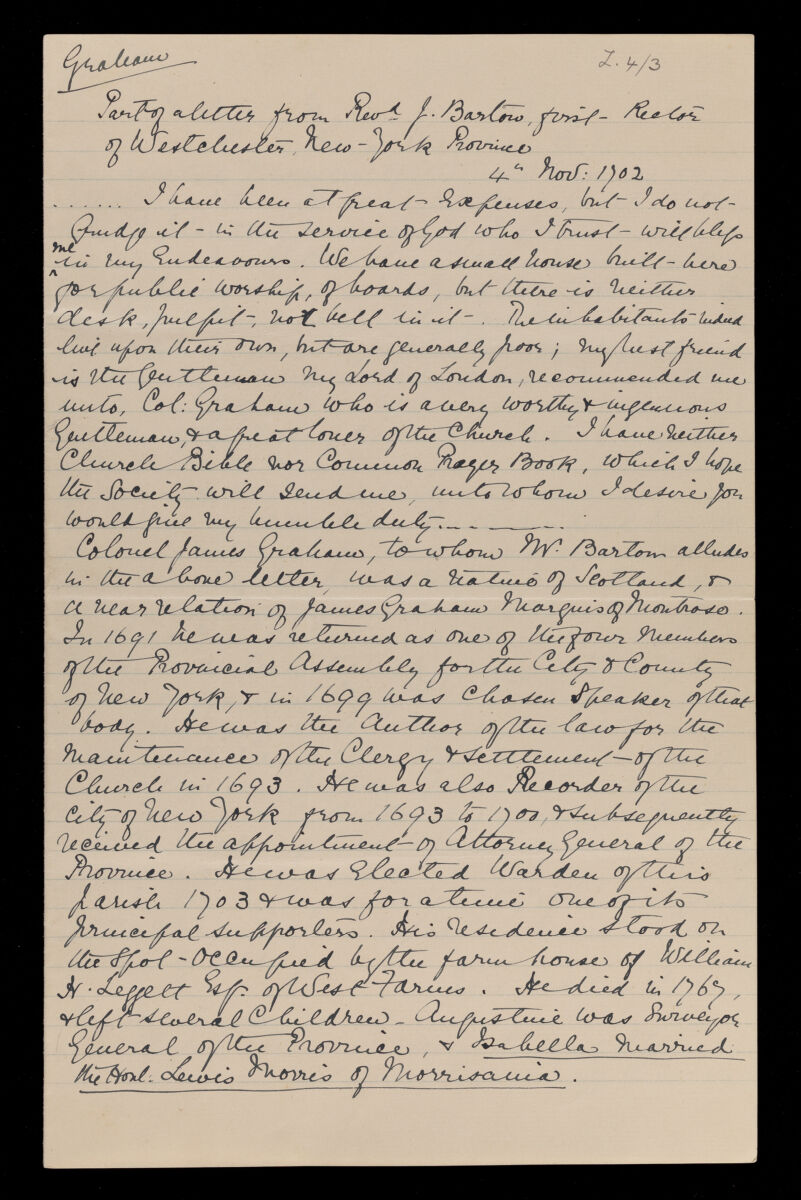 Graham
Z. 4/3
Part of a letter from Revd. J. Bartow, first Rector
of Westchester, New-York Province
4th Nov: 1702
...... I have been at great Expenses, but I do not
Grudge it - in the service of God who I trust - will bless
me
in my Endeavours. We have a small house built - here
for public worship, of boards, but there is neither
desk, pulpit, not bell in it -. The inhabitants indeed
live upon their own, but are generally poor; my best friend
is the Gentleman My Lord of London, recommended me
unto, Col: Graham who is a very worthy & ingenious
Gentleman, & a great lover of the Church. I have neither
Church Bible nor Common Prayer Book, which I hope
the Society will send me, unto whom I desire you
would give my humble duty.--------
Colonel James Graham, to whom Mr. Bartow alludes
in the above letter, was a native of Scotland, &
a near relation of James Graham Marquis of Montrose.
In 1691 he was returned as one of the four Members
of the Provincial Assembly for the City & County
of New York, & in 1699 was chosen Speaker of that
body. He was the Author of the law for the
Maintenance of the Clergy & settlement - of the
Church in 1693. He was also Recorder of the
City of New York from 1693 to 1700, & subsequently
received the appointment - of Attorney General of the
Province. He was Elected Warden of this
parish 1703 & was for a time one of its
principal supporters. His residence stood on
the Spot - Occupied by the farm house of William
H. Leggett Esq. of West Farms. He died in 1767,
& left several Children - Augustine was Surveyor
General of the Province, & Isabella married
the Honl: Lewis Morris of Morrisania.